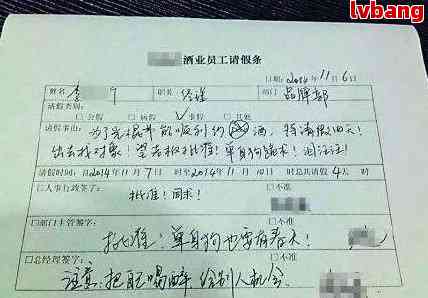 lvbang
酒业员工请假条
日期:2014年11月6日
姓名 李 职务 经理 部门 品牌部
请假类别:
□公假 □病假 ☑事假 □其他
请假事由: 为了光棍节能顺利约 酒, 特请假四天!
出去找对象! 望老板批准! 单身狗跪求! 泪注!
请假时间:自2014年11月7日至2014年11月10日 时总共请假4天 时
□人事行政签字: □不准
批准! 同求!
□部门主管签字: □不准
批准! 单身狗也要有春天!
□总经理签字: □不准
注意: 把 喝醉 给别人机会